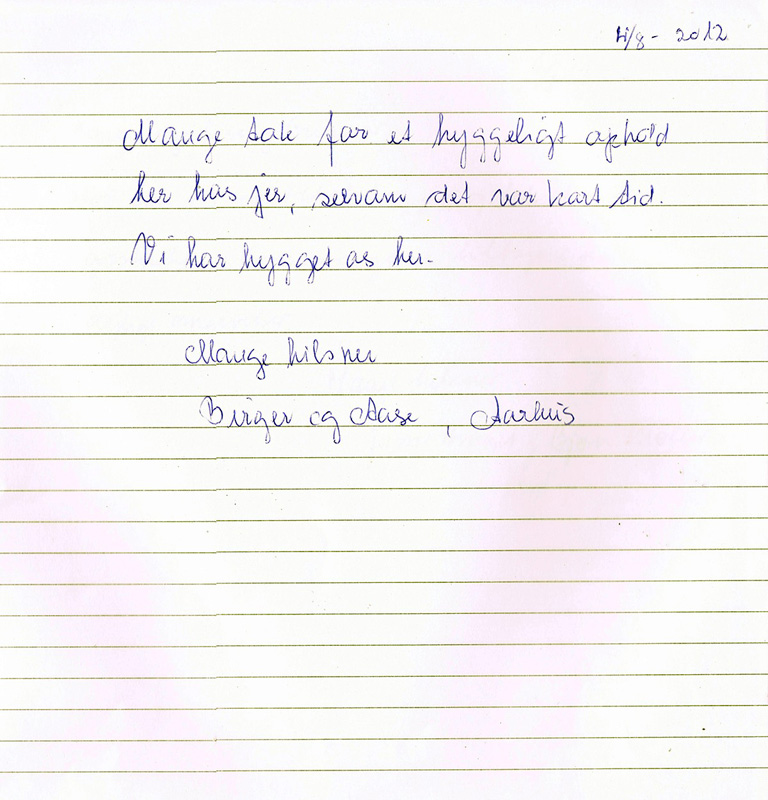 4/8 - 2012
Mange tak for et hyggeligt ophold
her hos jer, selvom det var kort tid.
Vi har hygget os her.
Mange hilsner
Birger og Aase, Aarhus